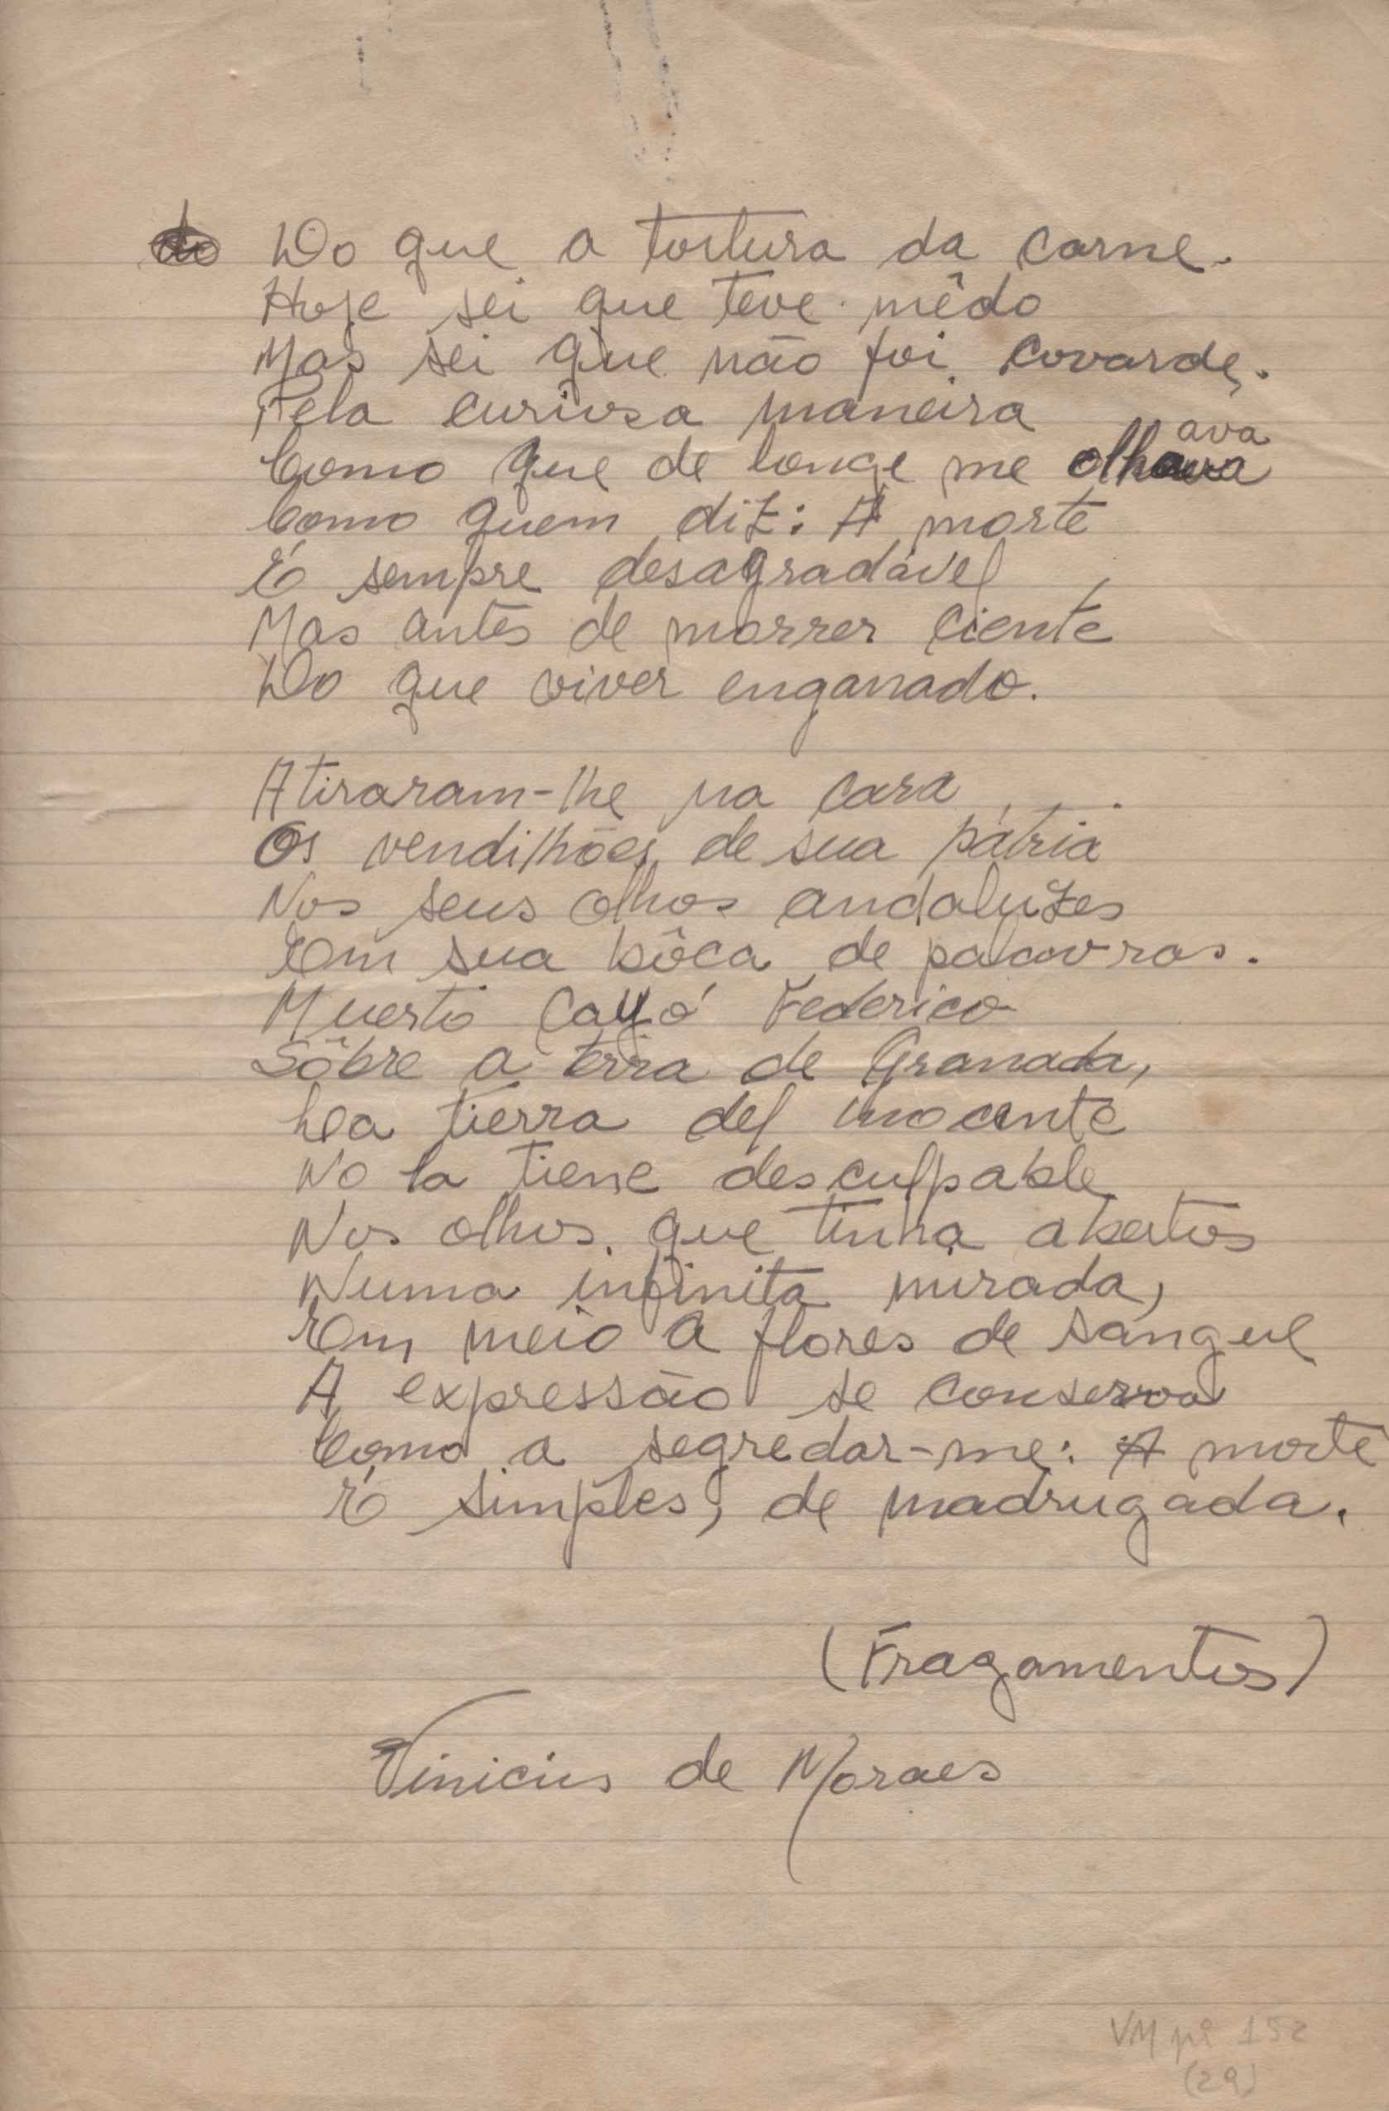 do Do que a tortura da carne.
Hoje sei que teve mêdo
Mas sei que não foi covarde.
Pela curiosa maneira
ava
Como que de longe me olhava
Como quem diz: A morte
É sempre desagradável
Mas antes de morrer ciente
Do que viver enganado.
Atiraram-lhe na cara
Os vendilhões de sua pátria
Nos seus olhos andaluzes
Em sua bôca de palavras.
Muerto cayó Federico
Sôbre a terra de Granada,
La tierra del inocente
No la tiene desculpable
Nos olhos que tinha abertos
Numa infinita mirada,
Em meio a flores de sangue
A expressão se conserva
Como a segredar-me: A morte
É simples, de madrugada.
(Fragamentos)
Vinicius de Moraes
VM pi 152
(29)